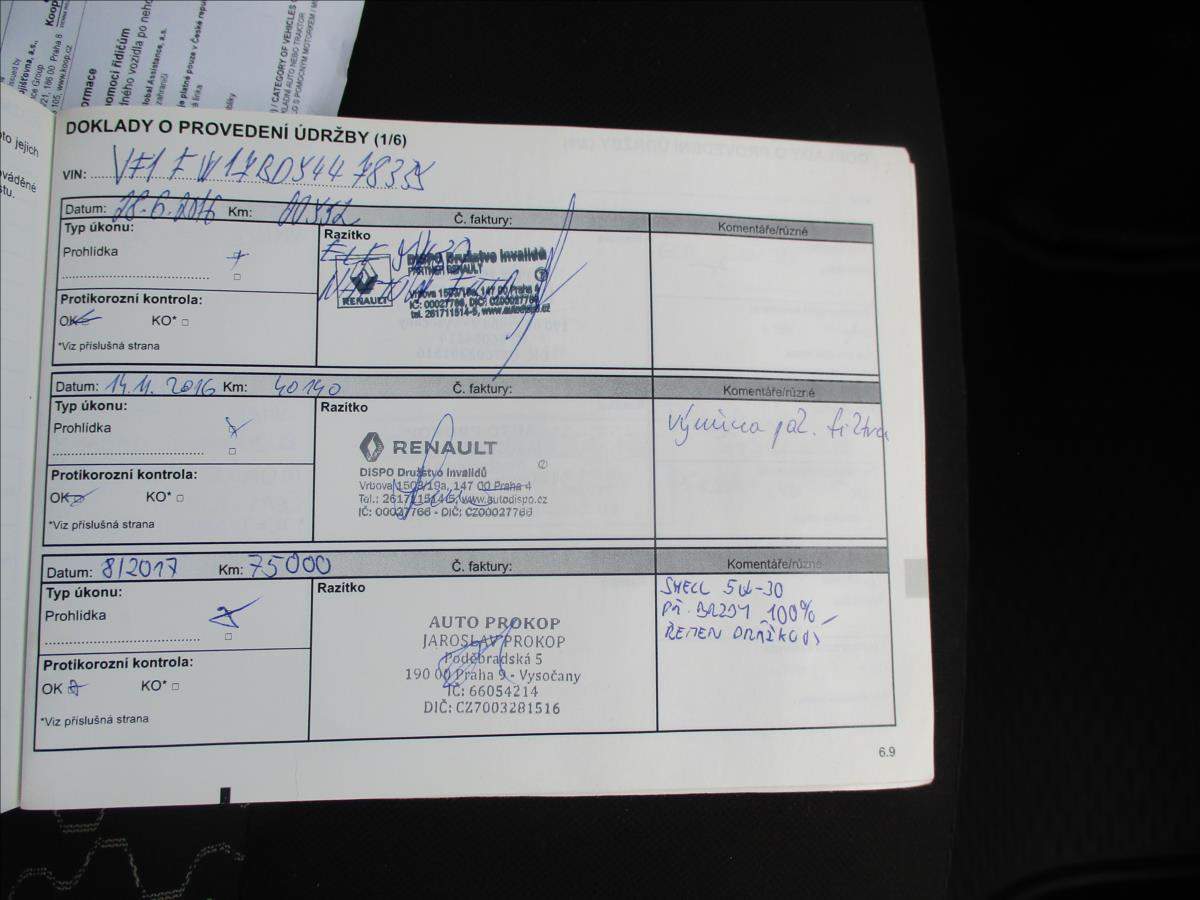 Global Assistance, a.s.
www.koop.cz
DOKLADY O PROVEDENÍ ÚDRŽBY (1/6)
VIN:
Datum: 28.6.2016 Km: Č. faktury: Komentáře/různé
Typ úkonu:
Prohlídka
Protikorozní kontrola:
OK KO*
*Viz příslušná strana
Razítko
RENAULT
DISPO Družstvo Invalidů
PARTNER RENAULT
Vrbova 1503/19a, 147 00 Praha 4
IČ: 00027766, DIČ: CZ00027766
tel. 261711514-5, www.autodispo.cz
Datum: 14.11.2016 Km: 40140 Č. faktury: Komentáře/různé
Typ úkonu:
Prohlídka
Protikorozní kontrola:
OK KO*
*Viz příslušná strana
Razítko
RENAULT
DISPO Družstvo Invalidů
Vrbova 1503/19a, 147 00 Praha 4
Tel.: 261711514-5, www.autodispo.cz
IČ: 00027766 - DIČ: CZ00027766
výměna pal. filtru
Datum: 8/2017 Km: 75000 Č. faktury: Komentáře/různé
Typ úkonu:
Prohlídka
Protikorozní kontrola:
OK KO*
*Viz příslušná strana
Razítko
AUTO PROKOP
JAROSLAV PROKOP
Poděbradská 5
190 00 Praha 9 - Vysočany
IČ: 66054214
DIČ: CZ7003281516
SHELL 5W-30
PŘ. BRZDY 100%
ŘEMEN DRÁŽKOVÝ
6.9